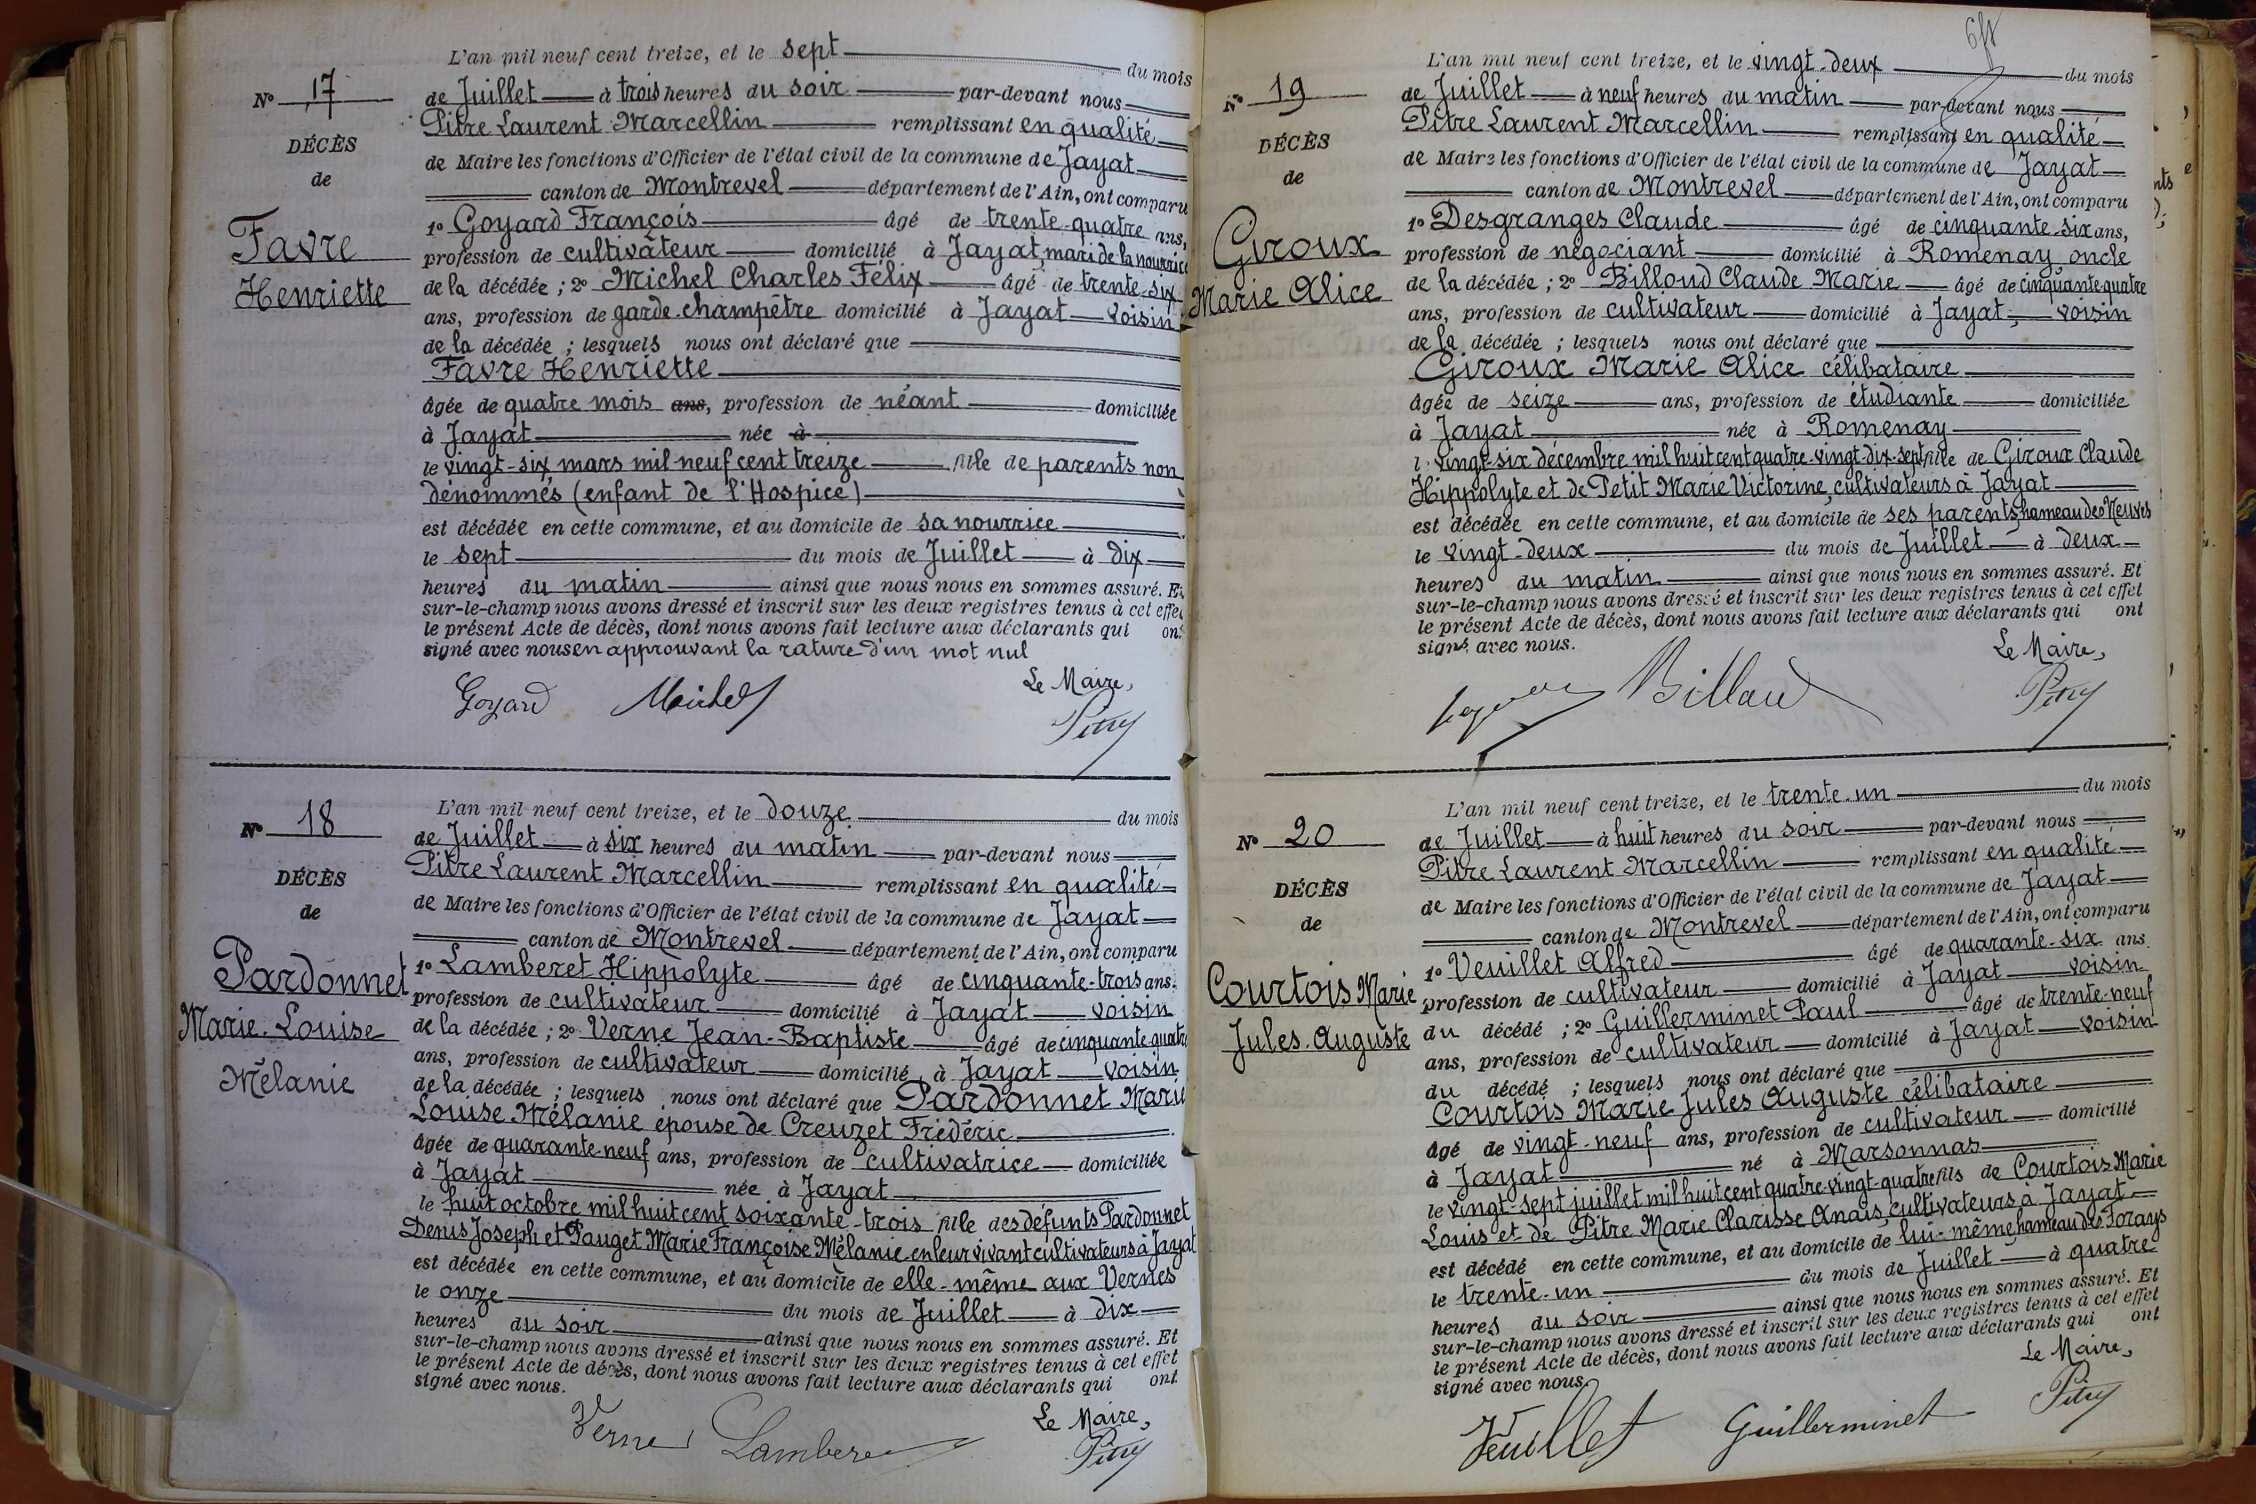 L'an mil neuf cent treize, et le sept du mois
N° 17
de Juillet à trois heures du soir par-devant nous
Pitre Laurent Marcellin remplissant en qualité
DÉCÈS
de Maire les fonctions d'Officier de l'état civil de la commune de Jayat
de
canton de Montrevel département de l'Ain, ont comparu
1° Goyard François âgé de trente-quatre ans,
Favre
profession de cultivateur domicilié à Jayat, mari de la nourrice
Henriette
de la décédée ; 2° Michel Charles Félix âgé de trente-six
ans, profession de garde-champêtre domicilié à Jayat voisin
de la décédée ; lesquels nous ont déclaré que
Favre Henriette
âgée de quatre mois ans, profession de néant domiciliée
à Jayat née à
le vingt-six mars mil neuf cent treize fille de parents non
dénommés (enfant de l'Hospice)
est décédée en cette commune, et au domicile de sa nourrice
le sept du mois de Juillet à dix
heures du matin ainsi que nous nous en sommes assuré. Et
sur-le-champ nous avons dressé et inscrit sur les deux registres tenus à cet effet
le présent Acte de décès, dont nous avons fait lecture aux déclarants qui ont
signé avec nous en approuvant la rature d'un mot nul
Le Maire,
Goyard Michel Pitre
L'an mil neuf cent treize, et le douze du mois
N° 18
de Juillet à six heures du matin par-devant nous
Pitre Laurent Marcellin remplissant en qualité
DÉCÈS
de Maire les fonctions d'Officier de l'état civil de la commune de Jayat
de
canton de Montrevel département de l'Ain, ont comparu
1° Lamberet Hippolyte âgé de cinquante-trois ans,
Pardonnet
profession de cultivateur domicilié à Jayat voisin
Marie-Louise
de la décédée ; 2° Verne Jean-Baptiste âgé de cinquante-quatre
ans, profession de cultivateur domicilié à Jayat voisin
Mélanie
de la décédée ; lesquels nous ont déclaré que Pardonnet Marie
Louise Mélanie épouse de Creuzet Frédéric
âgée de quarante-neuf ans, profession de cultivatrice domiciliée
à Jayat née à Jayat
le huit octobre mil huit cent soixante-trois fille des défunts Pardonnet
Denis Joseph et Pauget Marie Françoise Mélanie en leur vivant cultivateurs à Jayat
est décédée en cette commune, et au domicile de elle-même aux Vernes
le onze du mois de Juillet à dix
heures du soir ainsi que nous nous en sommes assuré. Et
sur-le-champ nous avons dressé et inscrit sur les deux registres tenus à cet effet
le présent Acte de décès, dont nous avons fait lecture aux déclarants qui ont
signé avec nous.
Le Maire,
Verne Lamberet Pitre
L'an mil neuf cent treize, et le vingt-deux du mois
N° 19
de Juillet à neuf heures du matin par-devant nous
Pitre Laurent Marcellin remplissant en qualité
DÉCÈS
de Maire les fonctions d'Officier de l'état civil de la commune de Jayat
de
canton de Montrevel département de l'Ain, ont comparu
1° Desgranges Claude âgé de cinquante-six ans,
Giroux
profession de négociant domicilié à Romenay oncle
Marie Alice
de la décédée ; 2° Billoud Claude Marie âgé de cinquante-quatre
ans, profession de cultivateur domicilié à Jayat, voisin
de la décédée ; lesquels nous ont déclaré que
Giroux Marie Alice célibataire
âgée de seize ans, profession de étudiante domiciliée
à Jayat née à Romenay
l vingt-six décembre mil huit cent quatre-vingt-dix-sept fille de Giroux Claude
Hippolyte et de Petit Marie Victorine, cultivateurs à Jayat
est décédée en cette commune, et au domicile de ses parents, hameau des Neuves
le vingt-deux du mois de Juillet à deux
heures du matin ainsi que nous nous en sommes assuré. Et
sur-le-champ nous avons dressé et inscrit sur les deux registres tenus à cet effet
le présent Acte de décès, dont nous avons fait lecture aux déclarants qui ont
signé avec nous.
Le Maire,
Billoud Pitre
L'an mil neuf cent treize, et le trente-un du mois
N° 20
de Juillet à huit heures du soir par-devant nous
Pitre Laurent Marcellin remplissant en qualité
DÉCÈS
de Maire les fonctions d'Officier de l'état civil de la commune de Jayat
de
canton de Montrevel département de l'Ain, ont comparu
1° Veuillet Alfred âgé de quarante-six ans
Courtois Marie
profession de cultivateur domicilié à Jayat voisin
Jules-Auguste
du décédé ; 2° Guillerminet Paul âgé de trente-neuf
ans, profession de cultivateur domicilié à Jayat voisin
du décédé ; lesquels nous ont déclaré que
Courtois Marie Jules Auguste célibataire
âgé de vingt-neuf ans, profession de cultivateur domicilié
à Jayat né à Marsonnas
le vingt-sept juillet mil huit cent quatre-vingt-quatre fils de Courtois Marie
Louis et de Pitre Marie Clarisse Anaïs, cultivateurs à Jayat
est décédé en cette commune, et au domicile de lui-même, hameau des Forays
le trente-un du mois de Juillet à quatre
heures du soir ainsi que nous nous en sommes assuré. Et
sur-le-champ nous avons dressé et inscrit sur les deux registres tenus à cet effet
le présent Acte de décès, dont nous avons fait lecture aux déclarants qui ont
signé avec nous.
Le Maire,
Veuillet Guillerminet Pitre